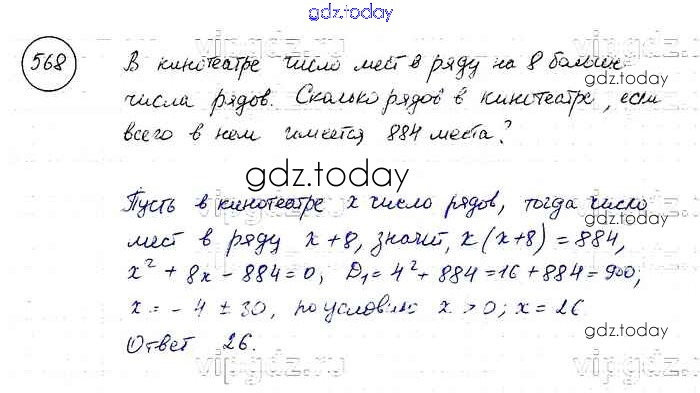 gdz.today
568
В кинотеатре число мест в ряду на 8 больше
числа рядов. Сколько рядов в кинотеатре, если
всего в нем имеется 884 места?
gdz.today
gdz.today
Пусть в кинотеатре x число рядов, тогда число
мест в ряду x + 8, значит, x (x+8) = 884,
x² + 8x - 884 = 0, D₁ = 4² + 884 = 16 + 884 = 900;
x = - 4 ± 30, по условию x > 0; x = 26.
Ответ 26.
gdz.today
gdz.today